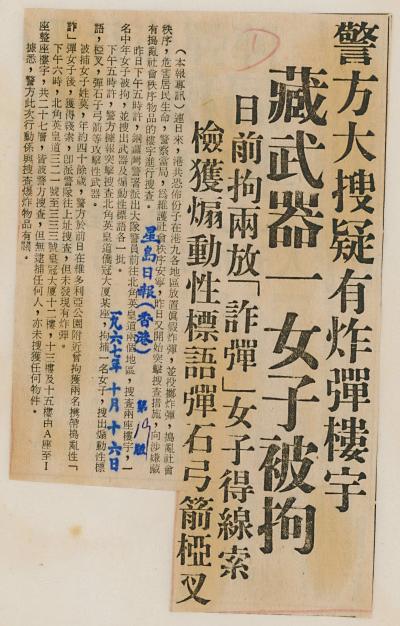 D
警方大搜疑有炸彈樓宇
藏武器一女子被拘
日前拘兩放「詐彈」女子得線索
檢獲煽動性標語彈石弓箭椏叉
(本報專訊)連日來,港共恐怖份子在港九各地區放置眞假炸彈,並投擲炸彈,搗亂社會
秩序,危害居民生命,警察當局,爲維護社會秩序安寧,昨日又開始突擊搜查措施,向涉嫌藏
有搗亂社會秩序物品的樓宇進行搜查。
昨日下午五時許,銅鑼灣警署派出大隊警員前往北角英皇道兩個地區,搜查兩座樓宇,一
名中年女子被拘,並搜出武器及煽動性標語各一批。
下午五時許,警方據報突擊搜查北角英皇道僑冠大厦某座,拘捕一名女子,搜出煽動性標
語,椏叉,彈石弓箭等攻擊性武器。
被捕女子姓英,年約四十餘歲。警方於前日在維多利亞公園附近曾拘獲兩名携帶搗亂性「
詐」彈女子後,獲得綫索,卽派警隊往上址搜查,但未發現有炸彈。
下午六時,北角英皇道三二一號至三三三號皇冠大厦十二樓,十三樓及十五樓由A座至I
座整座樓宇,共二十七層,皆被警方搜查,但無逮捕任何人,亦未搜獲任何物件。
據悉,警方此次行動係與搜查爆炸物品有關。
星島日報(香港) 第 版
一九六七年十月十六日